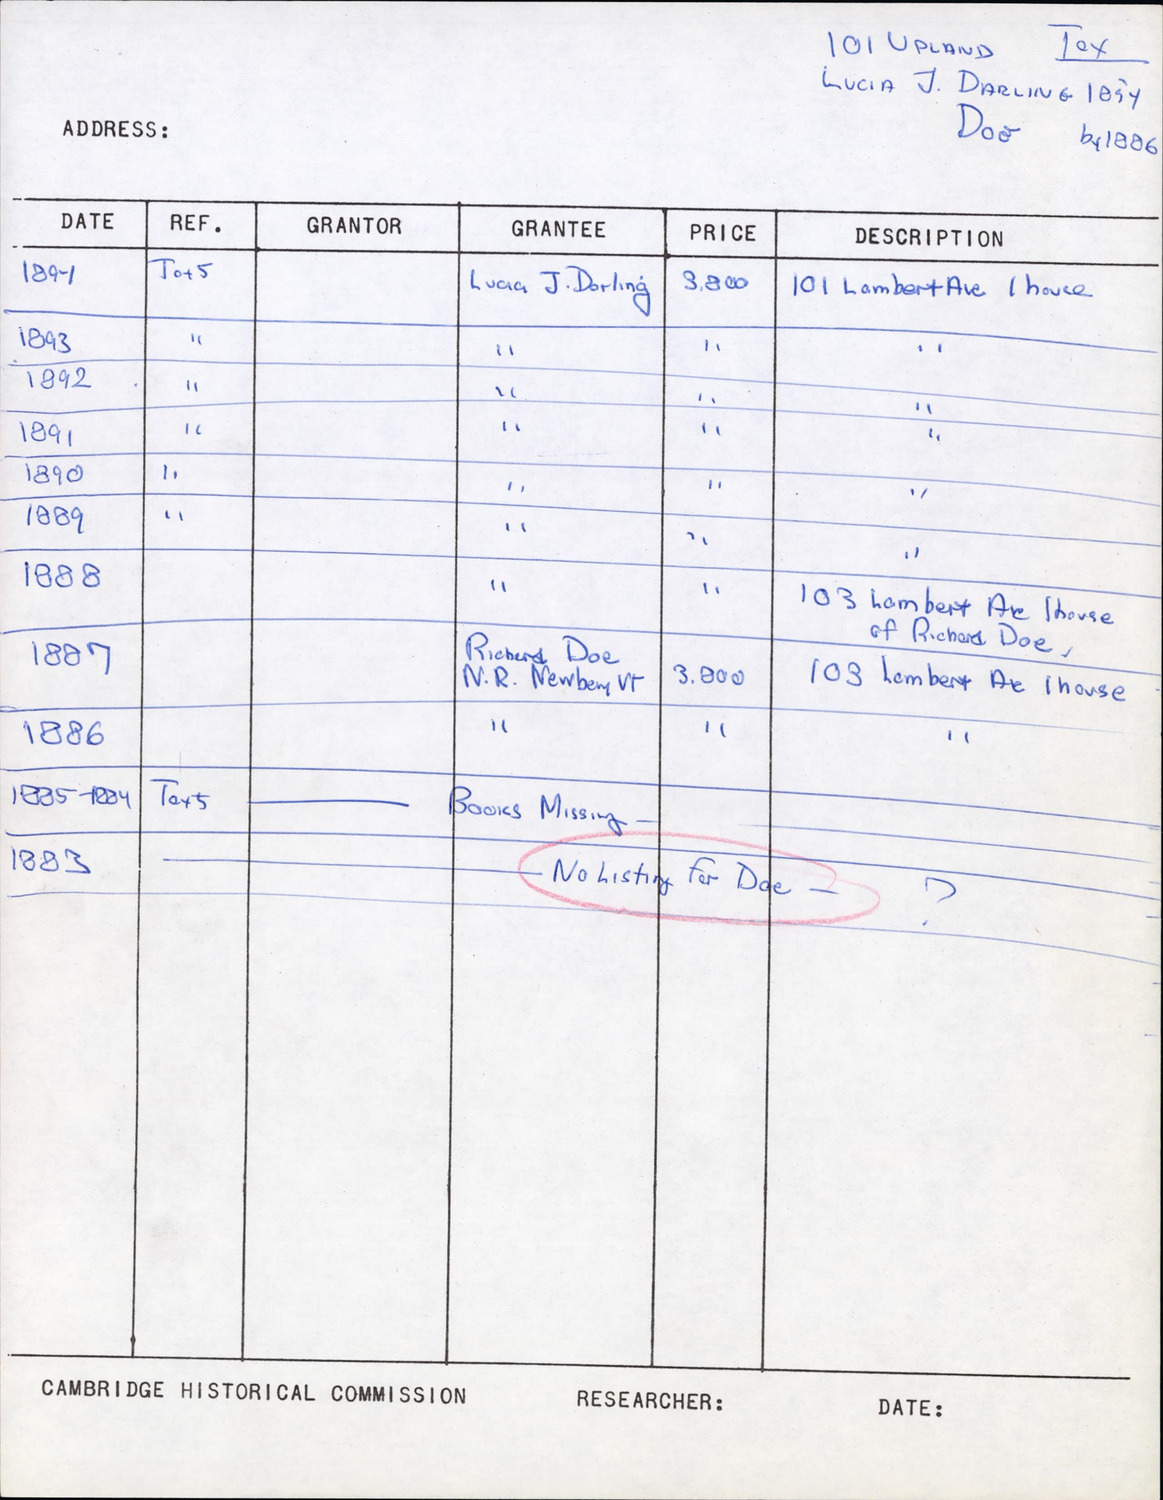 101 UPLAND Tax
LUCIA J. DARLING 1894
Doe by 1886
ADDRESS:
DATE REF. GRANTOR GRANTEE PRICE DESCRIPTION
1894 Tax5 Lucia J. Darling 3,800 101 Lambert Ave 1 house
1893 " " " "
1892 " " " "
1891 " " " "
1890 " " " "
1889 " " " "
1888 " " 103 Lambert Ave 1 house
of Richard Doe,
1887 Richard Doe
N.R. Newbery Vt 3.800 103 Lambert Ave 1 house
1886 " " "
1885-1884 Tax5 — Books Missing —
1883 — No Listing for Doe — ?
CAMBRIDGE HISTORICAL COMMISSION RESEARCHER: DATE: